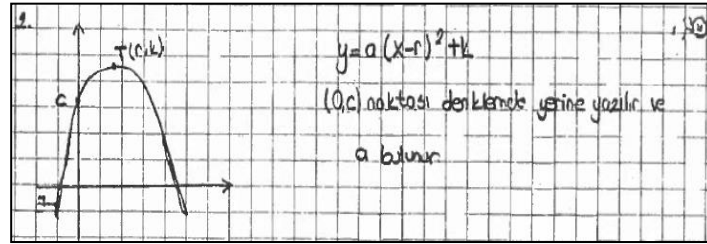 2.
T(r,k)
y=a(x-r)²+k
c
(0,c) noktası denklemde yerine yazılır ve
a bulunur.